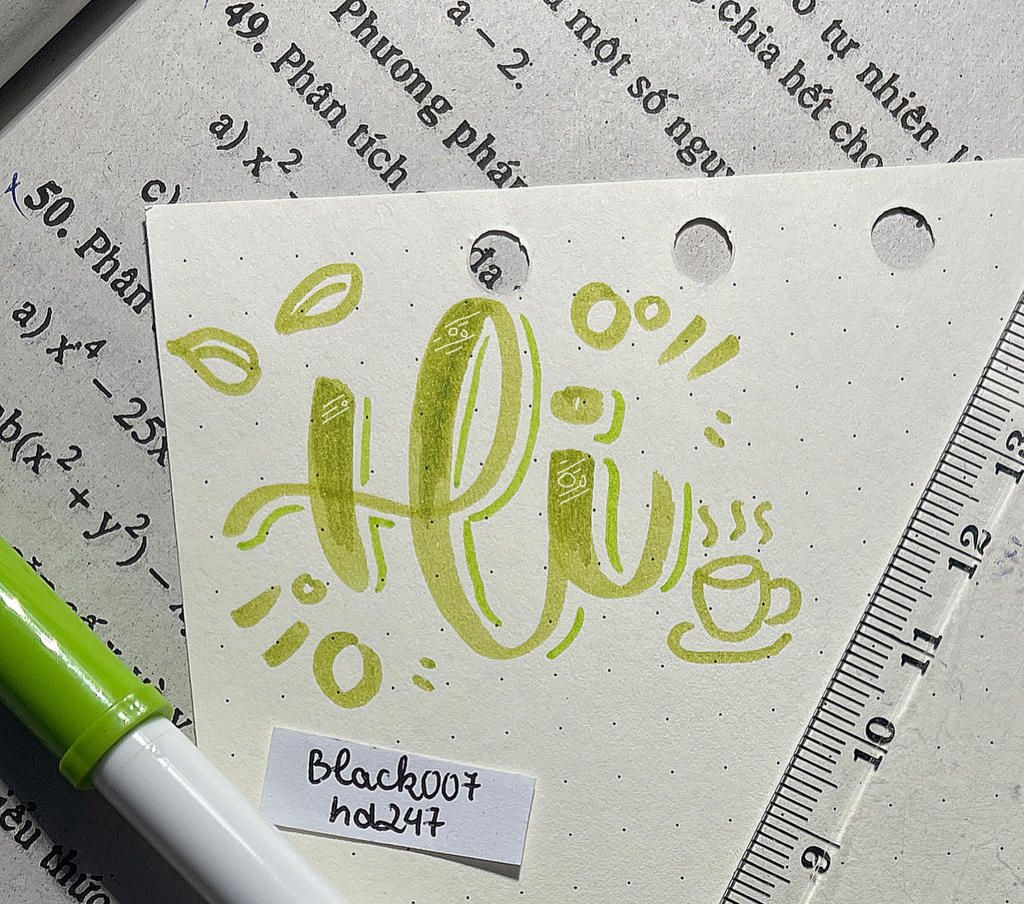 a – 2.
49. Phân tích
Phương pháp
một số nguy
chia hết cho
tự nhiên
a) x²
c)
50. Phân
a) x⁴ – 25x
b(x² + y²) –
iểu thức
đa
Hi
Black007
hd247
13
12
11
10
9